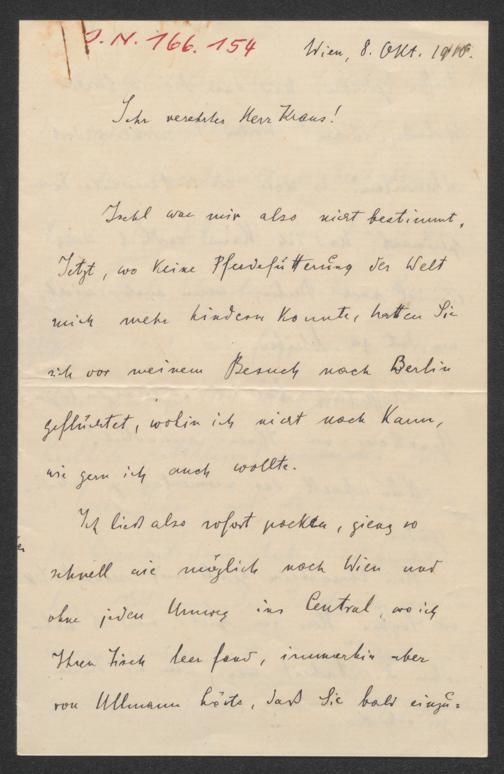 J.N. 166.154
Wien, 8. Okt. 1910.
Sehr verehrter Herr Kraus!
Ischl war mir also nicht bestimmt.
Jetzt, wo keine Pferdefütterung der Welt
mich mehr hindern konnte, hatten Sie
sich vor meinem Besuch nach Berlin
geflüchtet, wohin ich nicht nach kann,
wie gern ich auch wollte.
Ich ließ also sofort packen, gieng so
schnell wie möglich nach Wien und
ohne jeden Umweg ins Central, wo ich
Ihren Tisch leer fand, immerhin aber
von Ullmann hörte, daß Sie bald einzu=